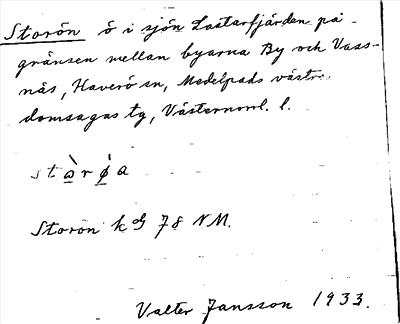 Storön ö i sjön Lastarfjärden på
gränsen mellan byarna By och Vass-
näs, Haverö sn, Medelpads västra
domsagas tg, Västernorrl. l.
stòrǿa
Storön k 78 NM.
Valter Jansson 1933.